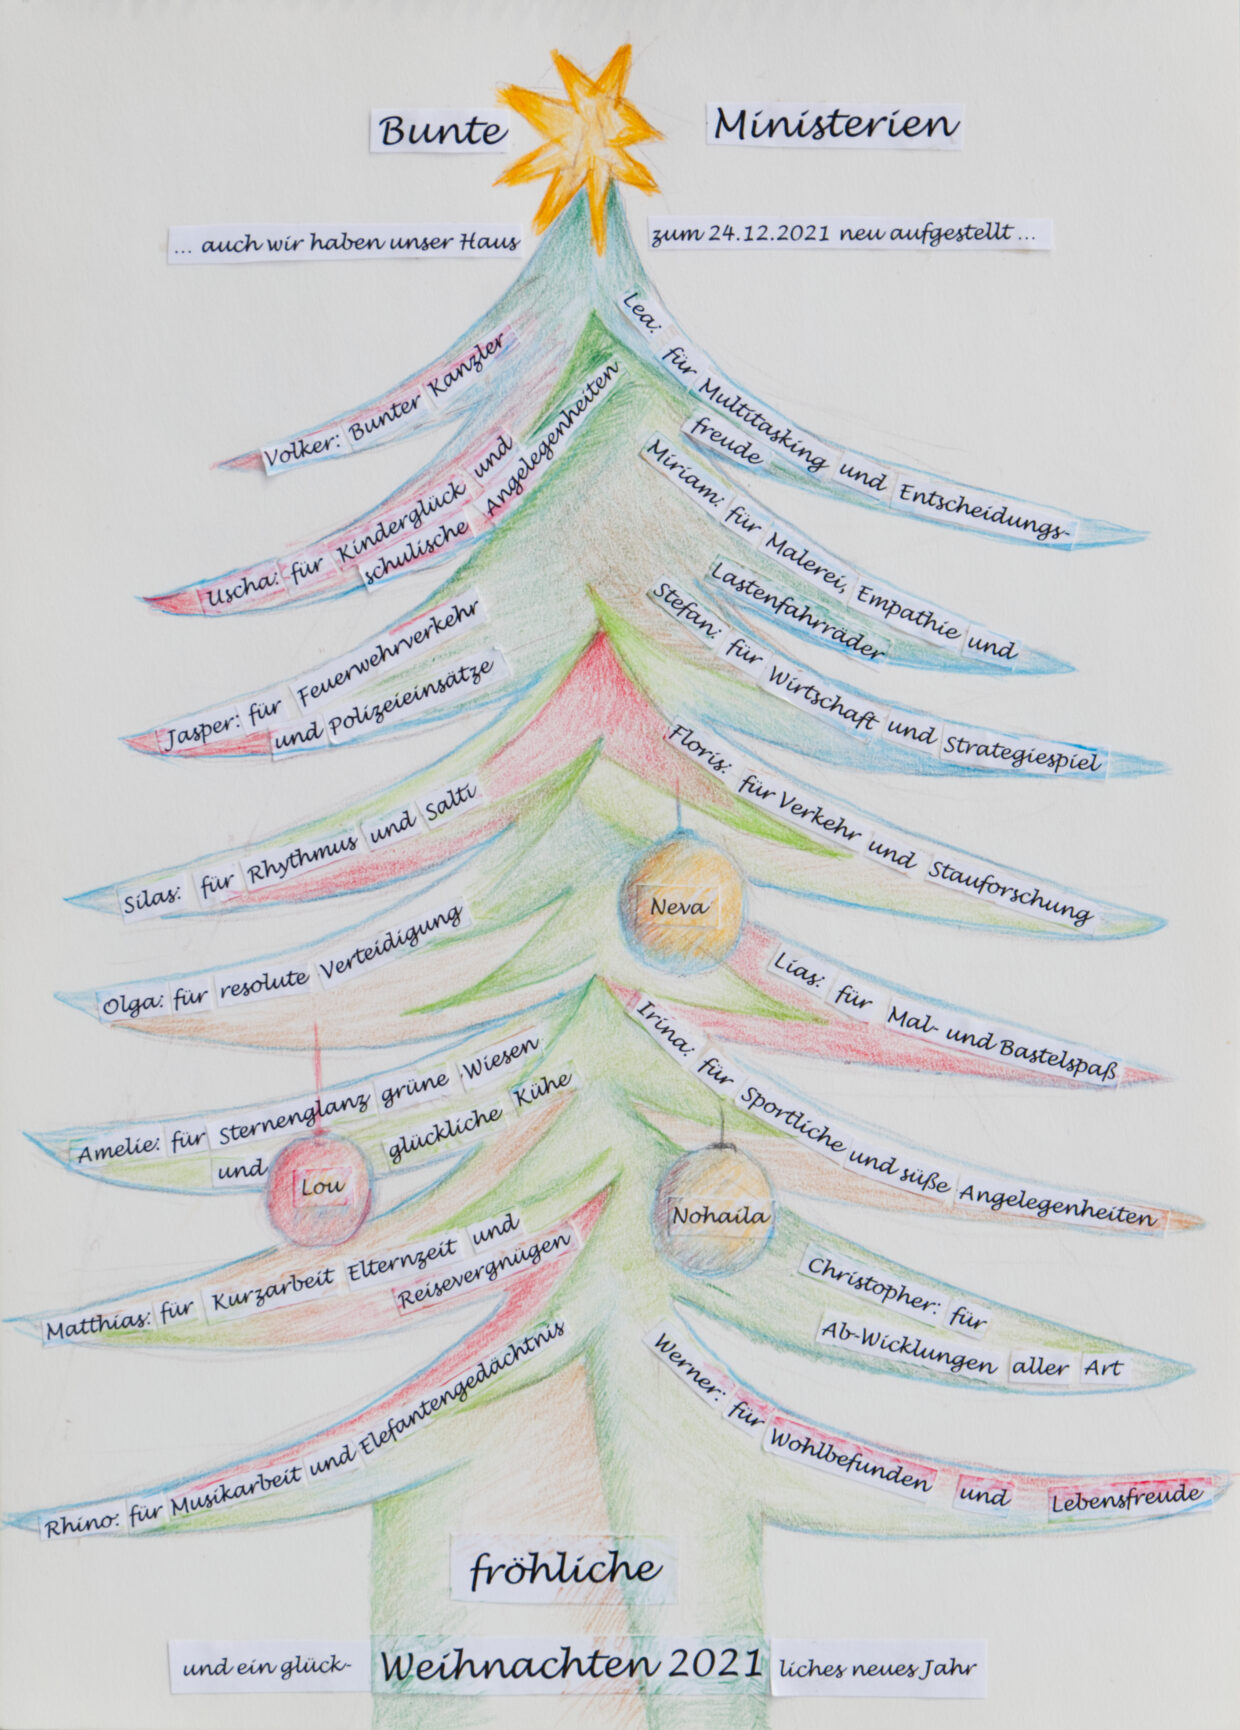 Bunte Ministerien
... auch wir haben unser Haus zum 24.12.2021 neu aufgestellt ...
Volker: Bunter Kanzler
Lea: für Multitasking und Entscheidungs-
freude
Uscha: für Kinderglück und
schulische Angelegenheiten
Miriam: für Malerei, Empathie und
Lastenfahrräder
Jasper: für Feuerwehrverkehr
und Polizeieinsätze
Stefan: für Wirtschaft und Strategiespiel
Silas: für Rhythmus und Salti
Floris: für Verkehr und Stauforschung
Neva
Olga: für resolute Verteidigung
Lias: für Mal- und Bastelspaß
Amelie: für Sternenglanz grüne Wiesen
und glückliche Kühe
Irina: für Sportliche und süße Angelegenheiten
Lou
Nohaila
Matthias: für Kurzarbeit Elternzeit und
Reisevergnügen
Christopher: für
Ab-Wicklungen aller Art
Rhino: für Musikarbeit und Elefantengedächtnis
Werner: für Wohlbefunden und Lebensfreude
fröhliche
Weihnachten 2021
und ein glück- liches neues Jahr